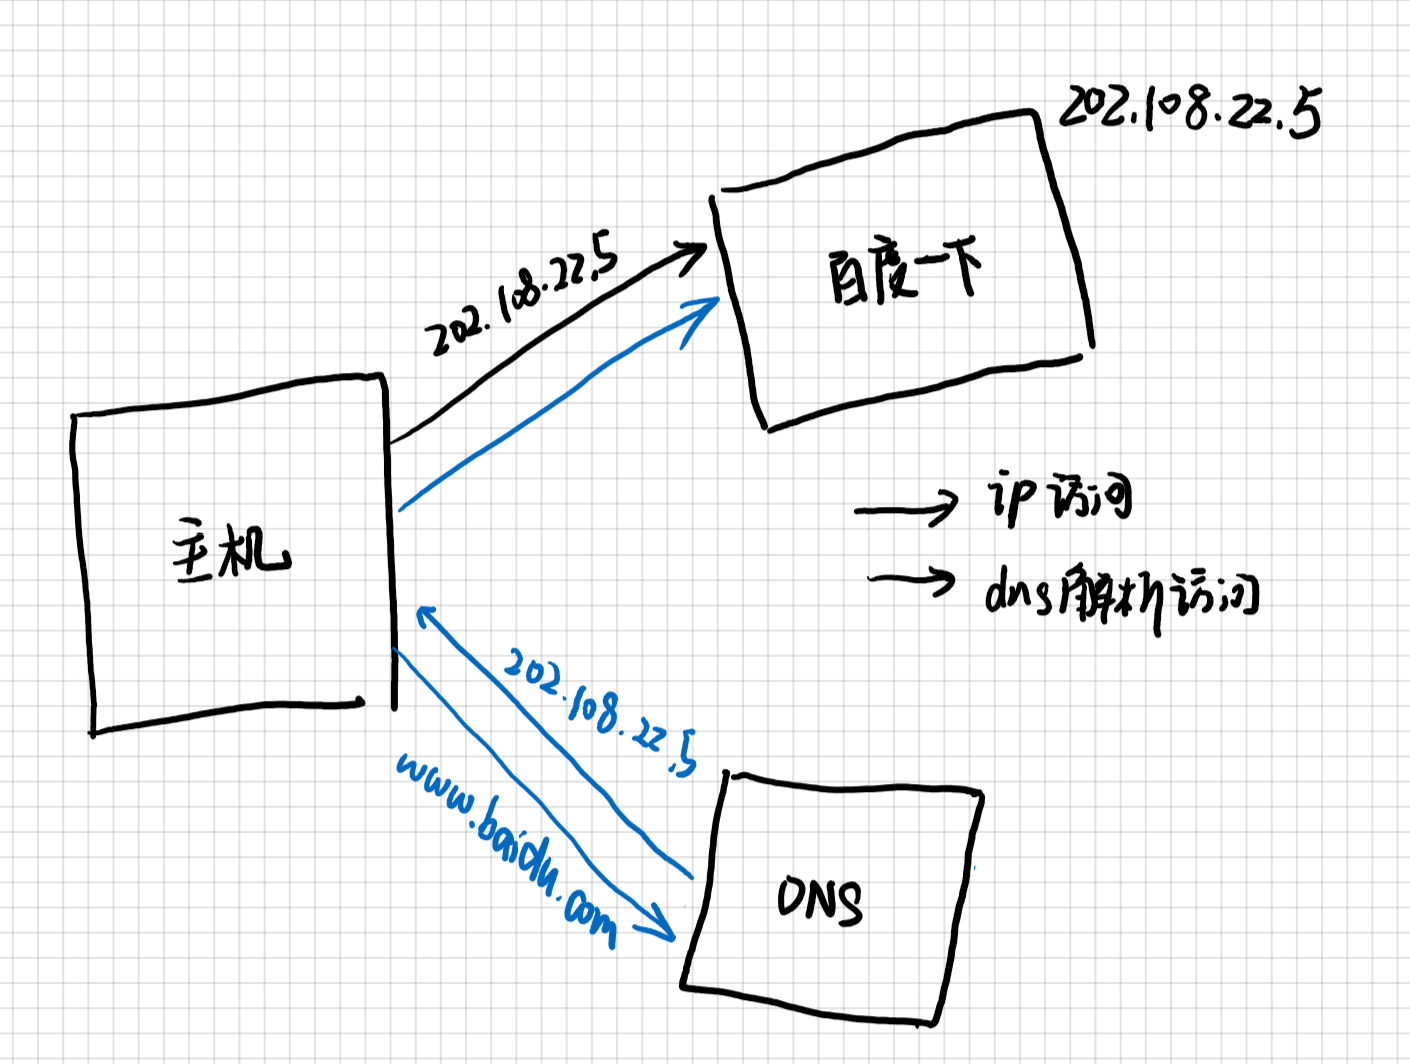 202.108.22.5
百度一下
202.108.22.5
ip访问
dns解析访问
主机
202.108.22.5
www.baidu.com
DNS